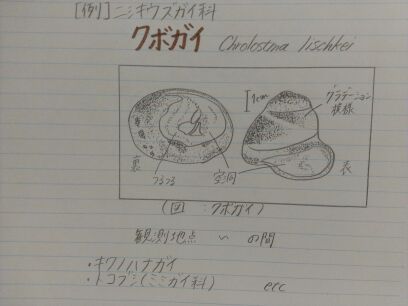 [例]ニシキウズガイ科
クボガイ Chrolostma lischkei
1cm
グラデーション
模様
裏
つるつる
空洞
表
(図 :クボガイ)
観測地点 〜 の間
・キクノハナガイ
・トコブシ(ミミガイ科) ecc